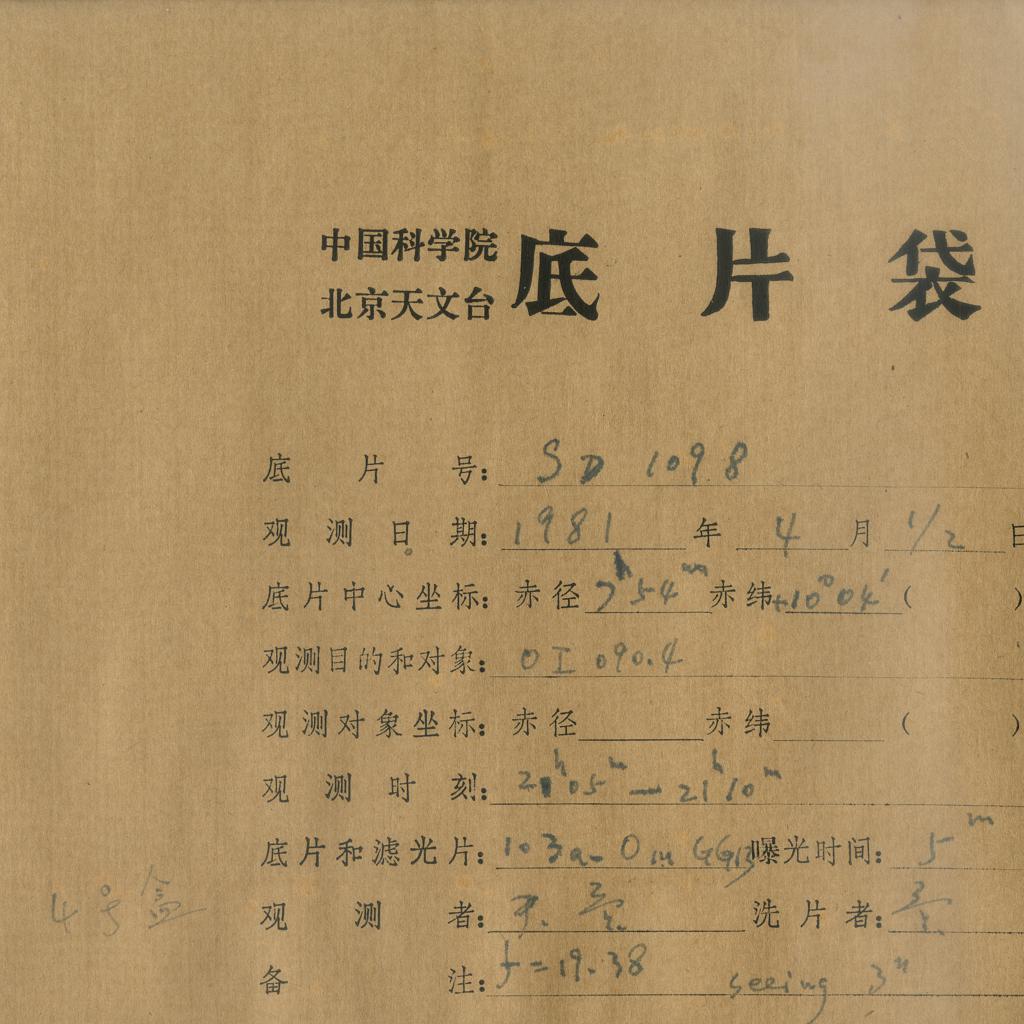 中国科学院
北京天文台
底片袋
底片号: SD 1098
观测日期: 1981 年 4 月 1/2 日
底片中心坐标: 赤径 7h 54m 赤纬 +10° 04′ ( )
观测目的和对象: OI 090.4
观测对象坐标: 赤径 赤纬 ( )
观测时刻: 21h 05m — 21h 10m
底片和滤光片: 103a-O GG13 曝光时间: 5m
4号盒
观测者: 洗片者:
备注: f=19.38 seeing 3"